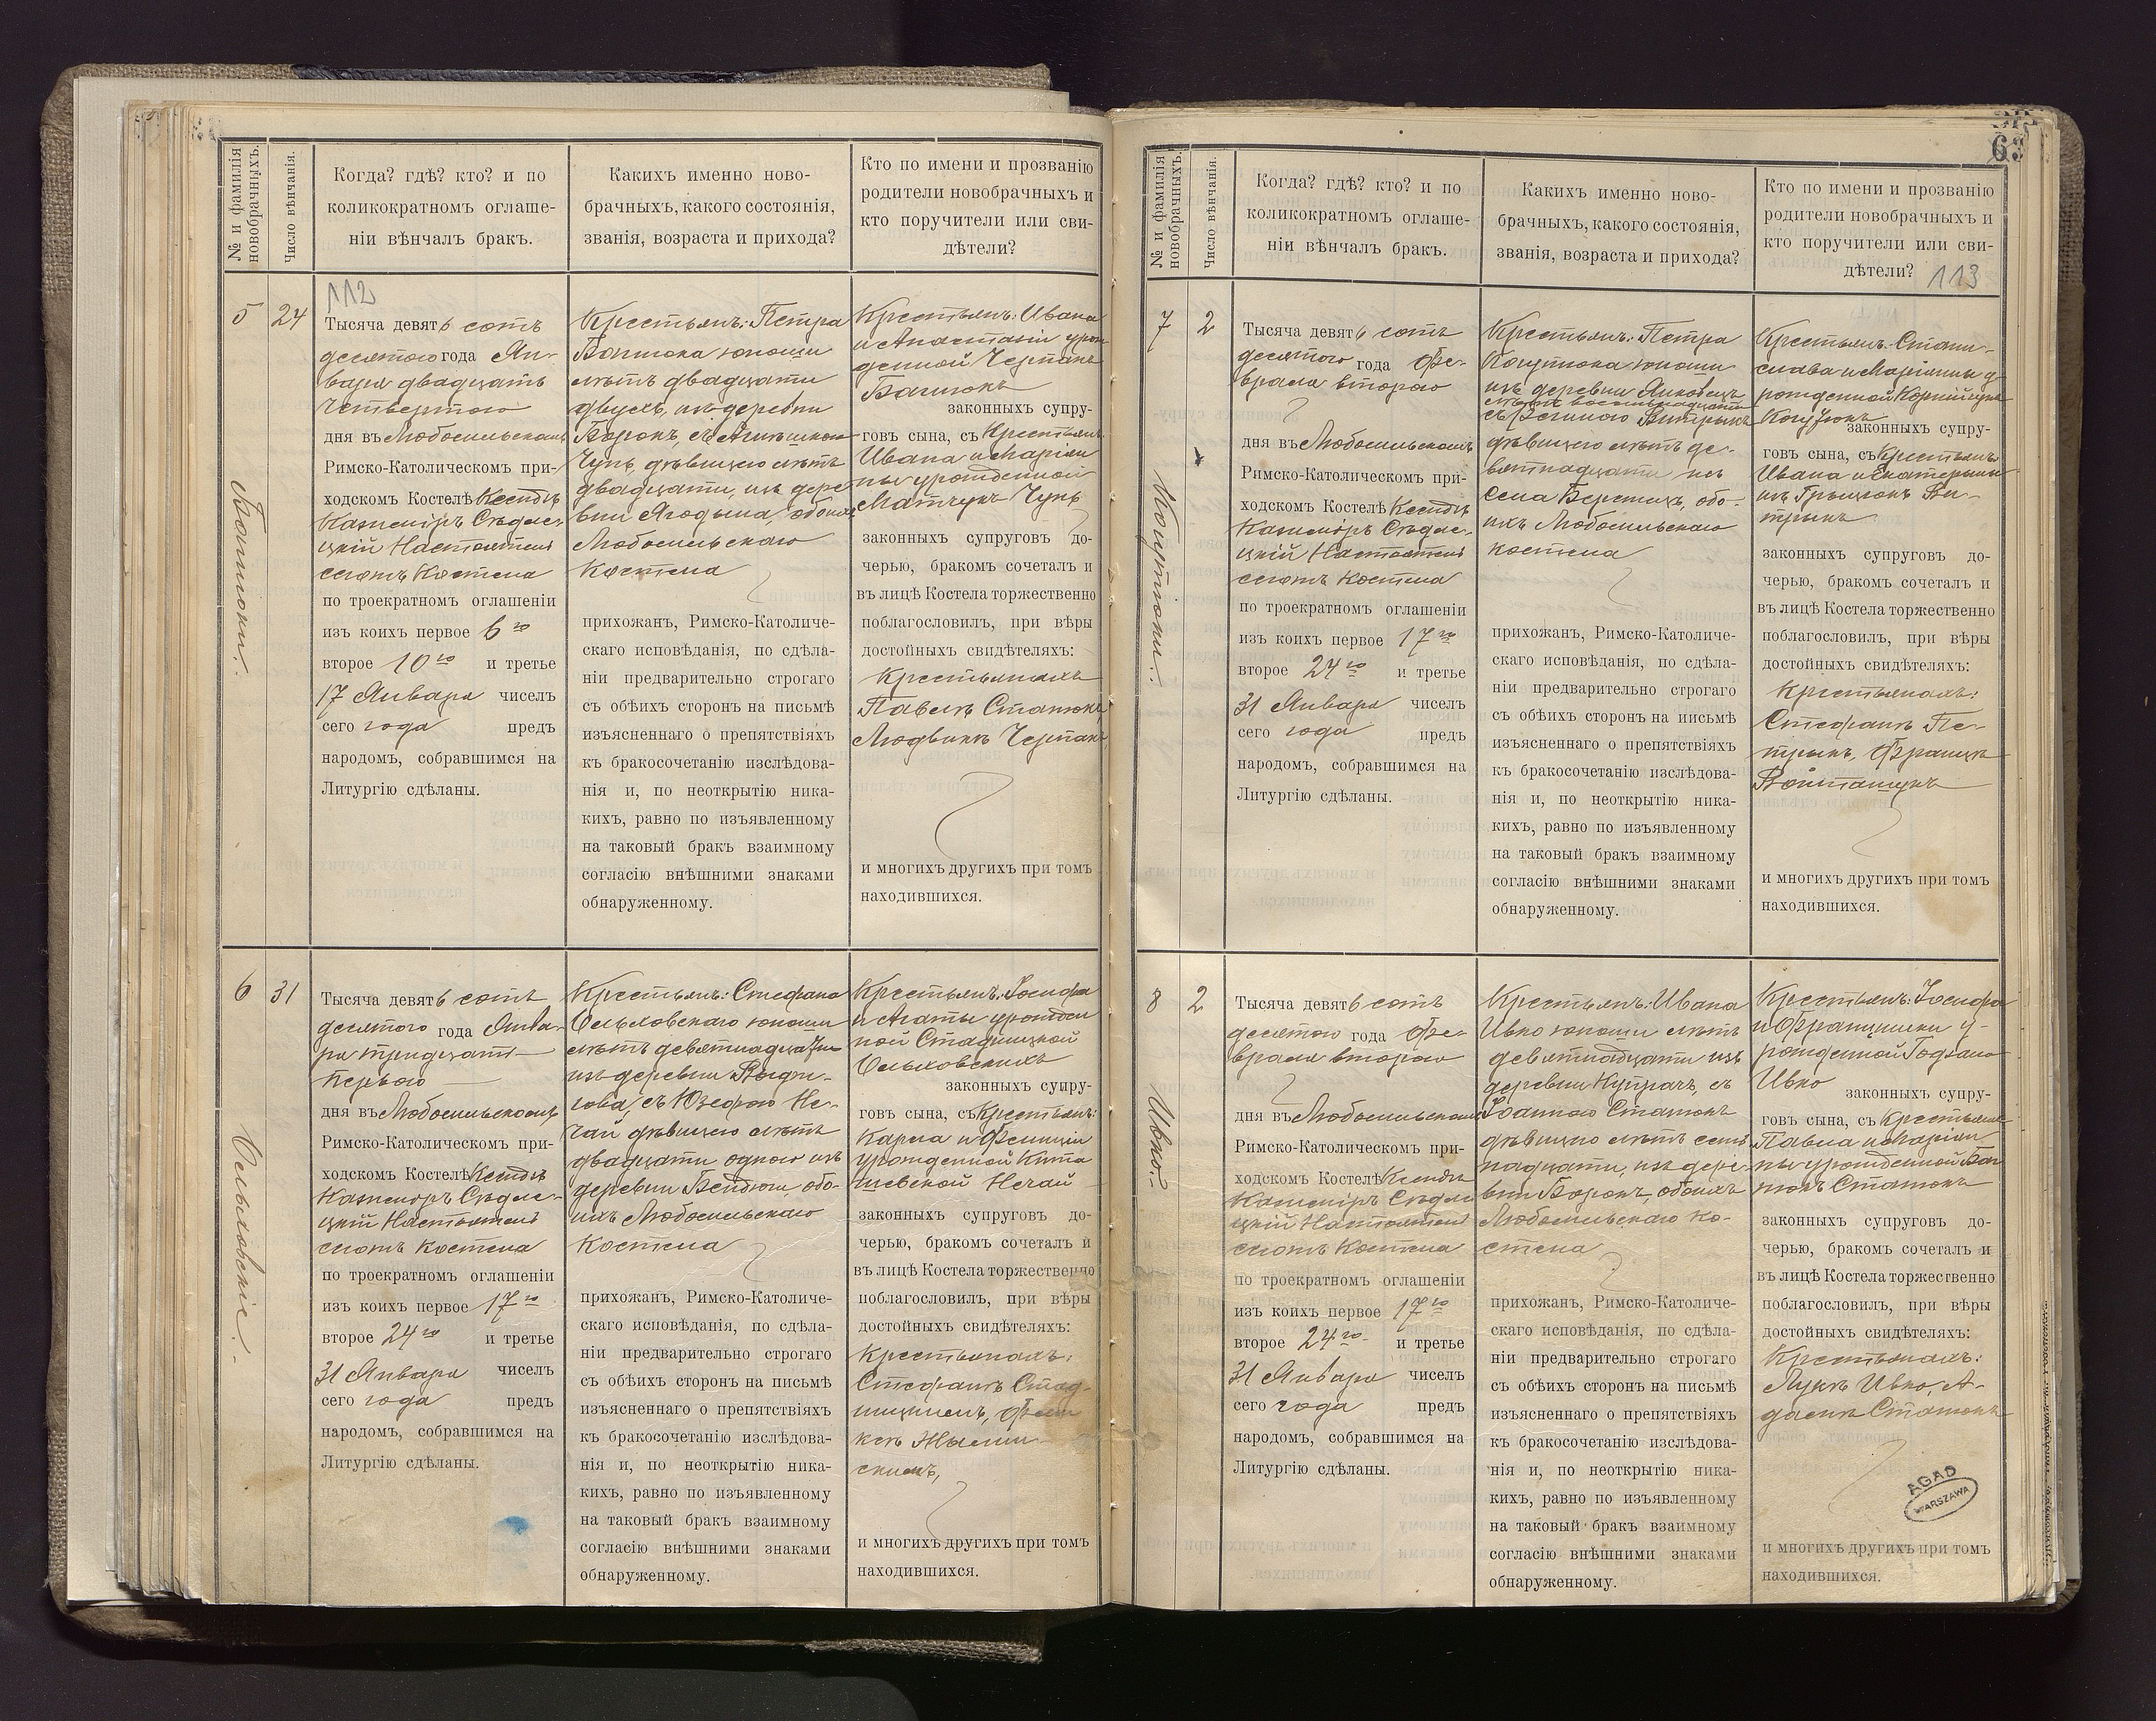 № и фамилія новобрачныхъ.
Число вѣнчанія.
Когда? гдѣ? кто? и по
коликократномъ оглаше-
ніи вѣнчалъ бракъ.
Какихъ именно ново-
брачныхъ, какого состоянія,
званія, возраста и прихода?
Кто по имени и прозванію
родители новобрачныхъ и
кто поручители или сви-
дѣтели?
5
24
112
Тысяча девятьсотъ
десятого года Ян-
варя двадцать
четвертого
дня въ Любомльскомъ
Римско-Католическомъ при-
ходскомъ Костелѣ Ксендзъ
Казиміръ
Настоятель
сегожъ Костела
по троекратномъ оглашеніи
изъ коихъ первое 6го
второе 10го и третье
17 Января чиселъ
сего года предъ
народомъ, собравшимся на
Литургію сдѣланы.
Крестьянъ: Петра
юноши
лѣтъ двадцати
двухъ, изъ деревни
дѣвицею лѣтъ
двадцати, изъ дере
вни Ягодына, обоихъ
Любомльскаго
Костела
прихожанъ, Римско-Католиче-
скаго исповѣданія, по сдѣла-
ніи предварительно строгаго
съ обѣихъ сторонъ на письмѣ
изъясненнаго о препятствіяхъ
къ бракосочетанію изслѣдова-
нія и, по неоткрытію ника-
кихъ, равно по изъявленному
на таковый бракъ взаимному
согласію внѣшними знаками
обнаруженному.
Крестьянъ: Ивана
и Анастасіи урож
денной
законныхъ супру-
говъ сына, съ Крестьянъ
Ивана и Маріан
ны урожденной
законныхъ супруговъ до-
черью, бракомъ сочеталъ и
въ лицѣ Костела торжественно
поблагословилъ, при вѣры
достойныхъ свидѣтеляхъ:
Крестьянахъ
Павелъ Статюкъ
Людвикъ
и многихъ другихъ при томъ
находившихся.
6
31
Ольховскіе.
Тысяча девятьсотъ
десятого года Янва-
ря тридцать
первого
дня въ Любомльскомъ
Римско-Католическомъ при-
ходскомъ Костелѣ Ксендзъ
Казиміръ
Настоятель
сегожъ Костела
по троекратномъ оглашеніи
изъ коихъ первое 17го
второе 24го и третье
31 Января чиселъ
сего года предъ
народомъ, собравшимся на
Литургію сдѣланы.
Крестьянъ: Стефана
Ольховскаго юноши
лѣтъ девятнадцати
изъ деревни
съ Юзефою Не-
чай дѣвицею лѣтъ
двадцати одного изъ
деревни обо-
ихъ Любомльскаго
Костела
прихожанъ, Римско-Католиче-
скаго исповѣданія, по сдѣла-
ніи предварительно строгаго
съ обѣихъ сторонъ на письмѣ
изъясненнаго о препятствіяхъ
къ бракосочетанію изслѣдова-
нія и, по неоткрытію ника-
кихъ, равно по изъявленному
на таковый бракъ взаимному
согласію внѣшними знаками
обнаруженному.
Крестьянъ: Іосифа
и Агаты урожден
ной
Ольховскихъ
законныхъ супру-
говъ сына, съ Крестьянъ:
Карла и Фелиціи
урожденной
Нечай
законныхъ супруговъ до-
черью, бракомъ сочеталъ и
въ лицѣ Костела торжественно
поблагословилъ, при вѣры
достойныхъ свидѣтеляхъ:
Крестьянахъ:
Стефанъ
и многихъ другихъ при томъ
находившихся.
63
№ и фамилія новобрачныхъ.
Число вѣнчанія.
Когда? гдѣ? кто? и по
коликократномъ оглаше-
ніи вѣнчалъ бракъ.
Какихъ именно ново-
брачныхъ, какого состоянія,
званія, возраста и прихода?
Кто по имени и прозванію
родители новобрачныхъ и
кто поручители или сви-
дѣтели?
113
7
2
Тысяча девятьсотъ
десятого года Фе-
враля второго
дня въ Любомльскомъ
Римско-Католическомъ при-
ходскомъ Костелѣ Ксендзъ
Казиміръ
Настоятель
сегожъ Костела
по троекратномъ оглашеніи
изъ коихъ первое 17го
второе 24го и третье
31 Января чиселъ
сего года предъ
народомъ, собравшимся на
Литургію сдѣланы.
Крестьянъ: Петра
юноши
изъ деревни
дѣвицею лѣтъ де-
вятнадцати изъ
села обо-
ихъ Любомльскаго
костела
прихожанъ, Римско-Католиче-
скаго исповѣданія, по сдѣла-
ніи предварительно строгаго
съ обѣихъ сторонъ на письмѣ
изъясненнаго о препятствіяхъ
къ бракосочетанію изслѣдова-
нія и, по неоткрытію ника-
кихъ, равно по изъявленному
на таковый бракъ взаимному
согласію внѣшними знаками
обнаруженному.
Крестьянъ: Стани-
слава и Маріанны у-
рожденной
законныхъ супру-
говъ сына, съ Крестьянъ
Ивана и Екатерины
законныхъ супруговъ до-
черью, бракомъ сочеталъ и
въ лицѣ Костела торжественно
поблагословилъ, при вѣры
достойныхъ свидѣтеляхъ:
Крестьянахъ:
Стефанъ Пе-
трыкъ,
и многихъ другихъ при томъ
находившихся.
8
2
Ивко.
Тысяча девятьсотъ
десятого года Фе-
враля второго
дня въ Любомльскомъ
Римско-Католическомъ при-
ходскомъ Костелѣ Ксендзъ
Казиміръ
Настоятель
сегожъ Костела
по троекратномъ оглашеніи
изъ коихъ первое 17го
второе 24го и третье
31 Января чиселъ
сего года предъ
народомъ, собравшимся на
Литургію сдѣланы.
Крестьянъ: Ивана
Ивко юноши лѣтъ
девятнадцати изъ
деревни съ
Іоанною Статюкъ
дѣвицею лѣтъ сем
надцати, изъ дере-
вни обоихъ
Любомльскаго ко-
стела
прихожанъ, Римско-Католиче-
скаго исповѣданія, по сдѣла-
ніи предварительно строгаго
съ обѣихъ сторонъ на письмѣ
изъясненнаго о препятствіяхъ
къ бракосочетанію изслѣдова-
нія и, по неоткрытію ника-
кихъ, равно по изъявленному
на таковый бракъ взаимному
согласію внѣшними знаками
обнаруженному.
Крестьянъ: Іосифа
и Францишки у-
рожденной
Ивко
законныхъ супру-
говъ сына, съ Крестьянъ
Павла и Маріан
ны урожденной
Статюкъ
законныхъ супруговъ до-
черью, бракомъ сочеталъ и
въ лицѣ Костела торжественно
поблагословилъ, при вѣры
достойныхъ свидѣтеляхъ:
Крестьянахъ:
Ивко, А-
Статюкъ
и многихъ другихъ при томъ
находившихся.
AGAD
WARSZAWA